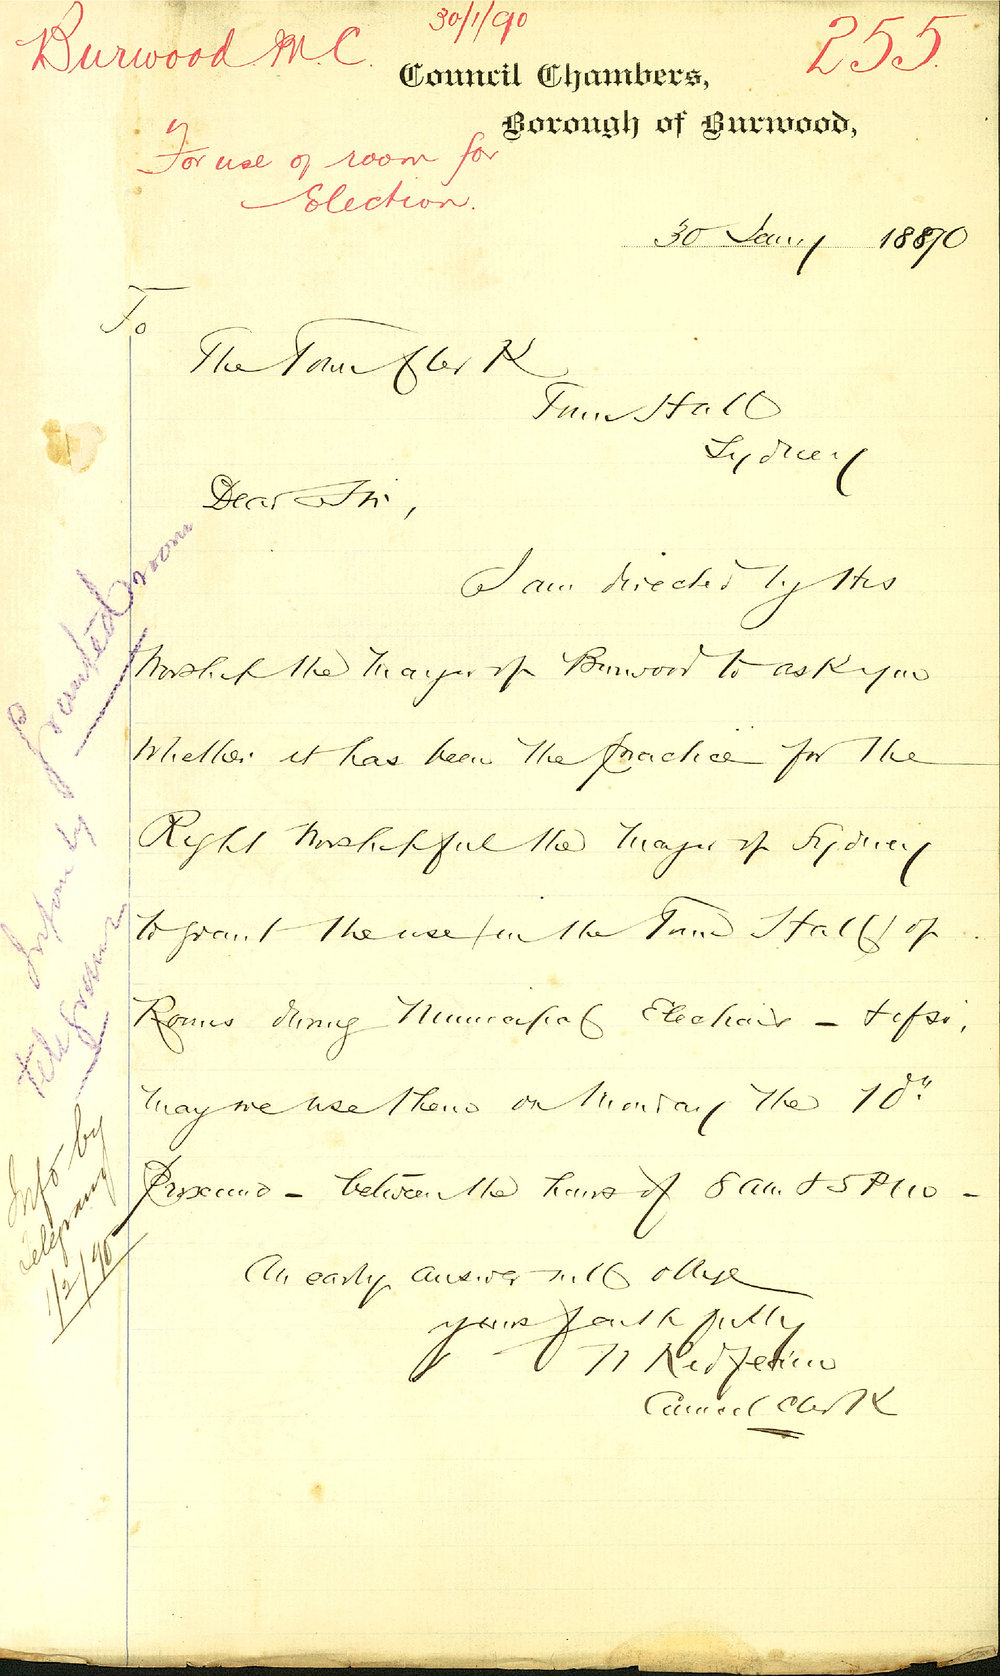 Burwood M.C.
30/1/90
255.
Council Chambers,
Borough of Burwood,
For use of room for
Election.
30 Jany 1890
To
The Town Clerk
Town Hall
Sydney
Dear Sir,
I am directed by His
Worship the Mayor of Burwood to ask you
whether it has been the practice for the
Right Worshipful the Mayor of Sydney
to grant the use (in the Town Hall) of
Rooms during Municipal Elections - & if so,
may we use them on Monday the 10th
Proximo - between the hours of 8 am & 5 PM -
An early answer will oblige
yours faithfully
Redfearn
Council Clerk
Granted room
Inform by
telegram
Info by
telegram
1/2/90